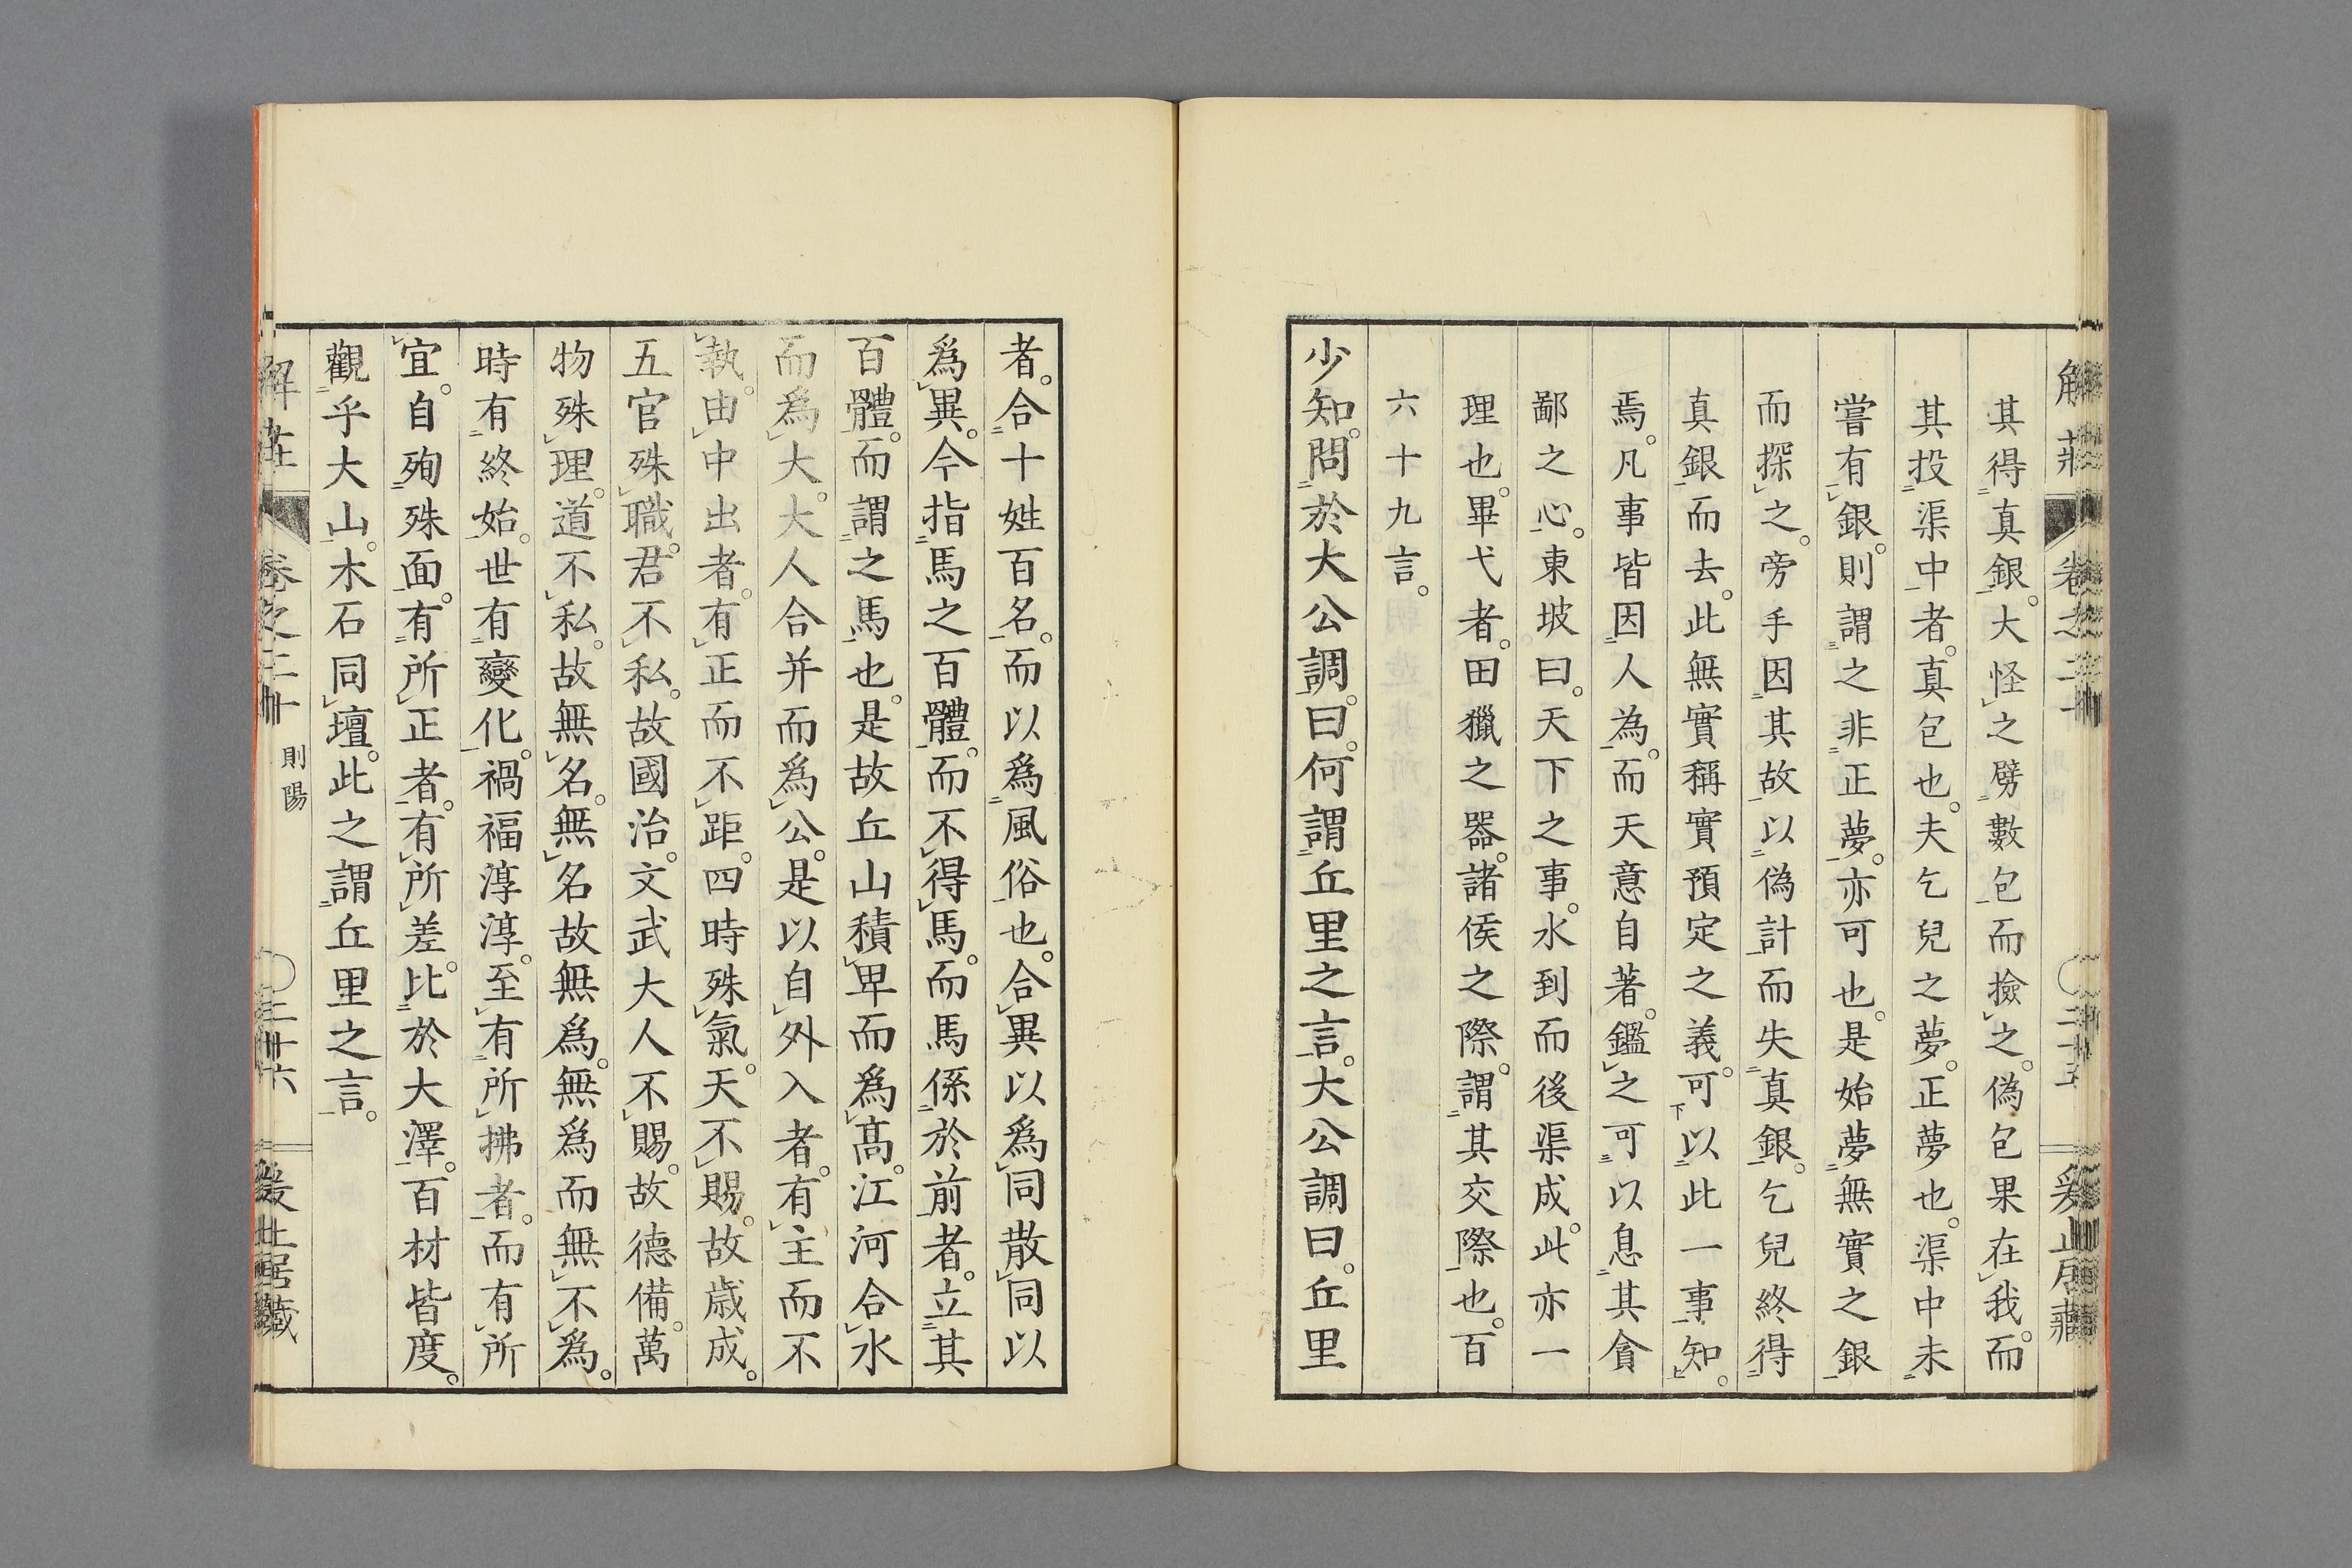 解莊 卷之二十 二十五 爰止居藏
其得真銀。大怪之劈數包而撿之。偽包果在我。而
其投渠中者。真包也。夫乞兒之夢。正夢也。渠中未
嘗有銀。則謂之非正夢。亦可也。是始夢無實之銀
而探之。旁手因其故以偽計而失真銀。乞兒終得
真銀而去。此無實稱實預定之義。可以此一事知。
焉。凡事皆因人為。而天意自著。鑑之可以息其貪
鄙之心。東坡曰。天下之事。水到而後渠成。此亦一
理也。畢弋者。田獵之器。諸侯之際。謂其交際也。百
六十九言。
少知。問於大公調。曰。何謂丘里之言。大公調曰。丘里
者。合十姓百名。而以爲風俗也。合異以爲同散同以
爲異。今指馬之百體。而不得馬。而馬係於前者。立其
百體。而謂之馬也。是故丘山積卑而爲高。江河合水
而爲大。大人合并而爲公。是以自外入者。有主而不
執。由中出者。有正而不距。四時殊氣。天不賜。故歳成。
五官殊職。君不私。故國治。文武大人不賜。故德備。萬
物殊理。道不私。故無名。無名故無爲。無爲而無不爲。
時有終始。世有變化。禍福淳淳。至有所拂者。而有所
宜。自殉殊面。有所正者。有所差。比於大澤。百材皆度。
觀乎大山。木石同壇。此之謂丘里之言。
解莊 卷之二十 則陽 二十六 爰止居藏